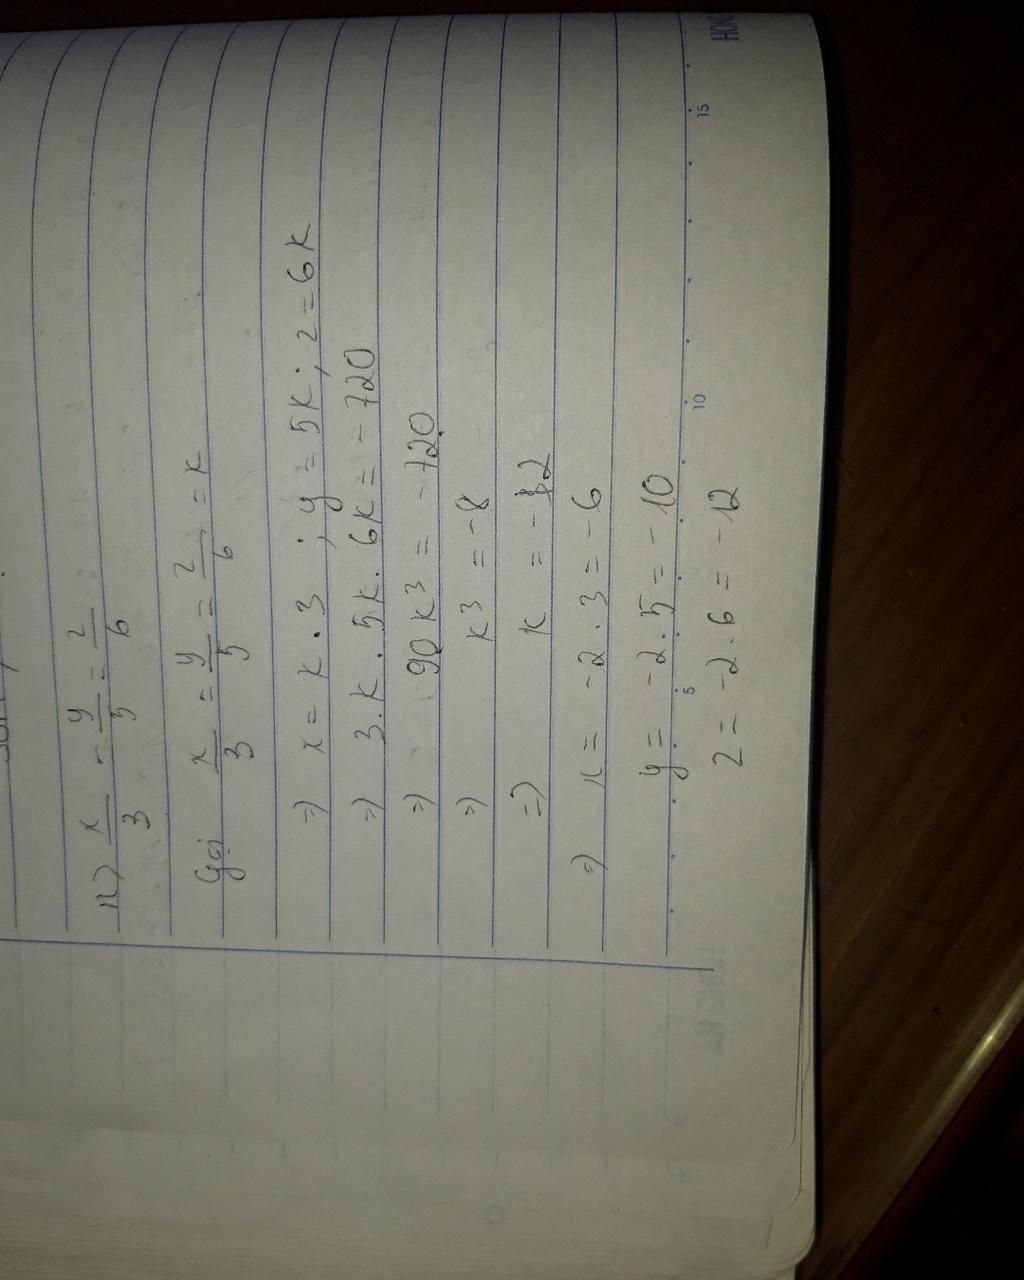 n) x/3 - y/5 = z/6
Gọi x/3 = y/5 = z/6 = k
=) x = k . 3 ; y = 5k ; z = 6k
=) 3.k . 5k . 6k = - 720
=) 90k³ = - 720
=) k³ = -8
=) k = -2
=) x = -2 . 3 = -6
y = -2.5 = -10
5 10 15
z = -2.6 = -12